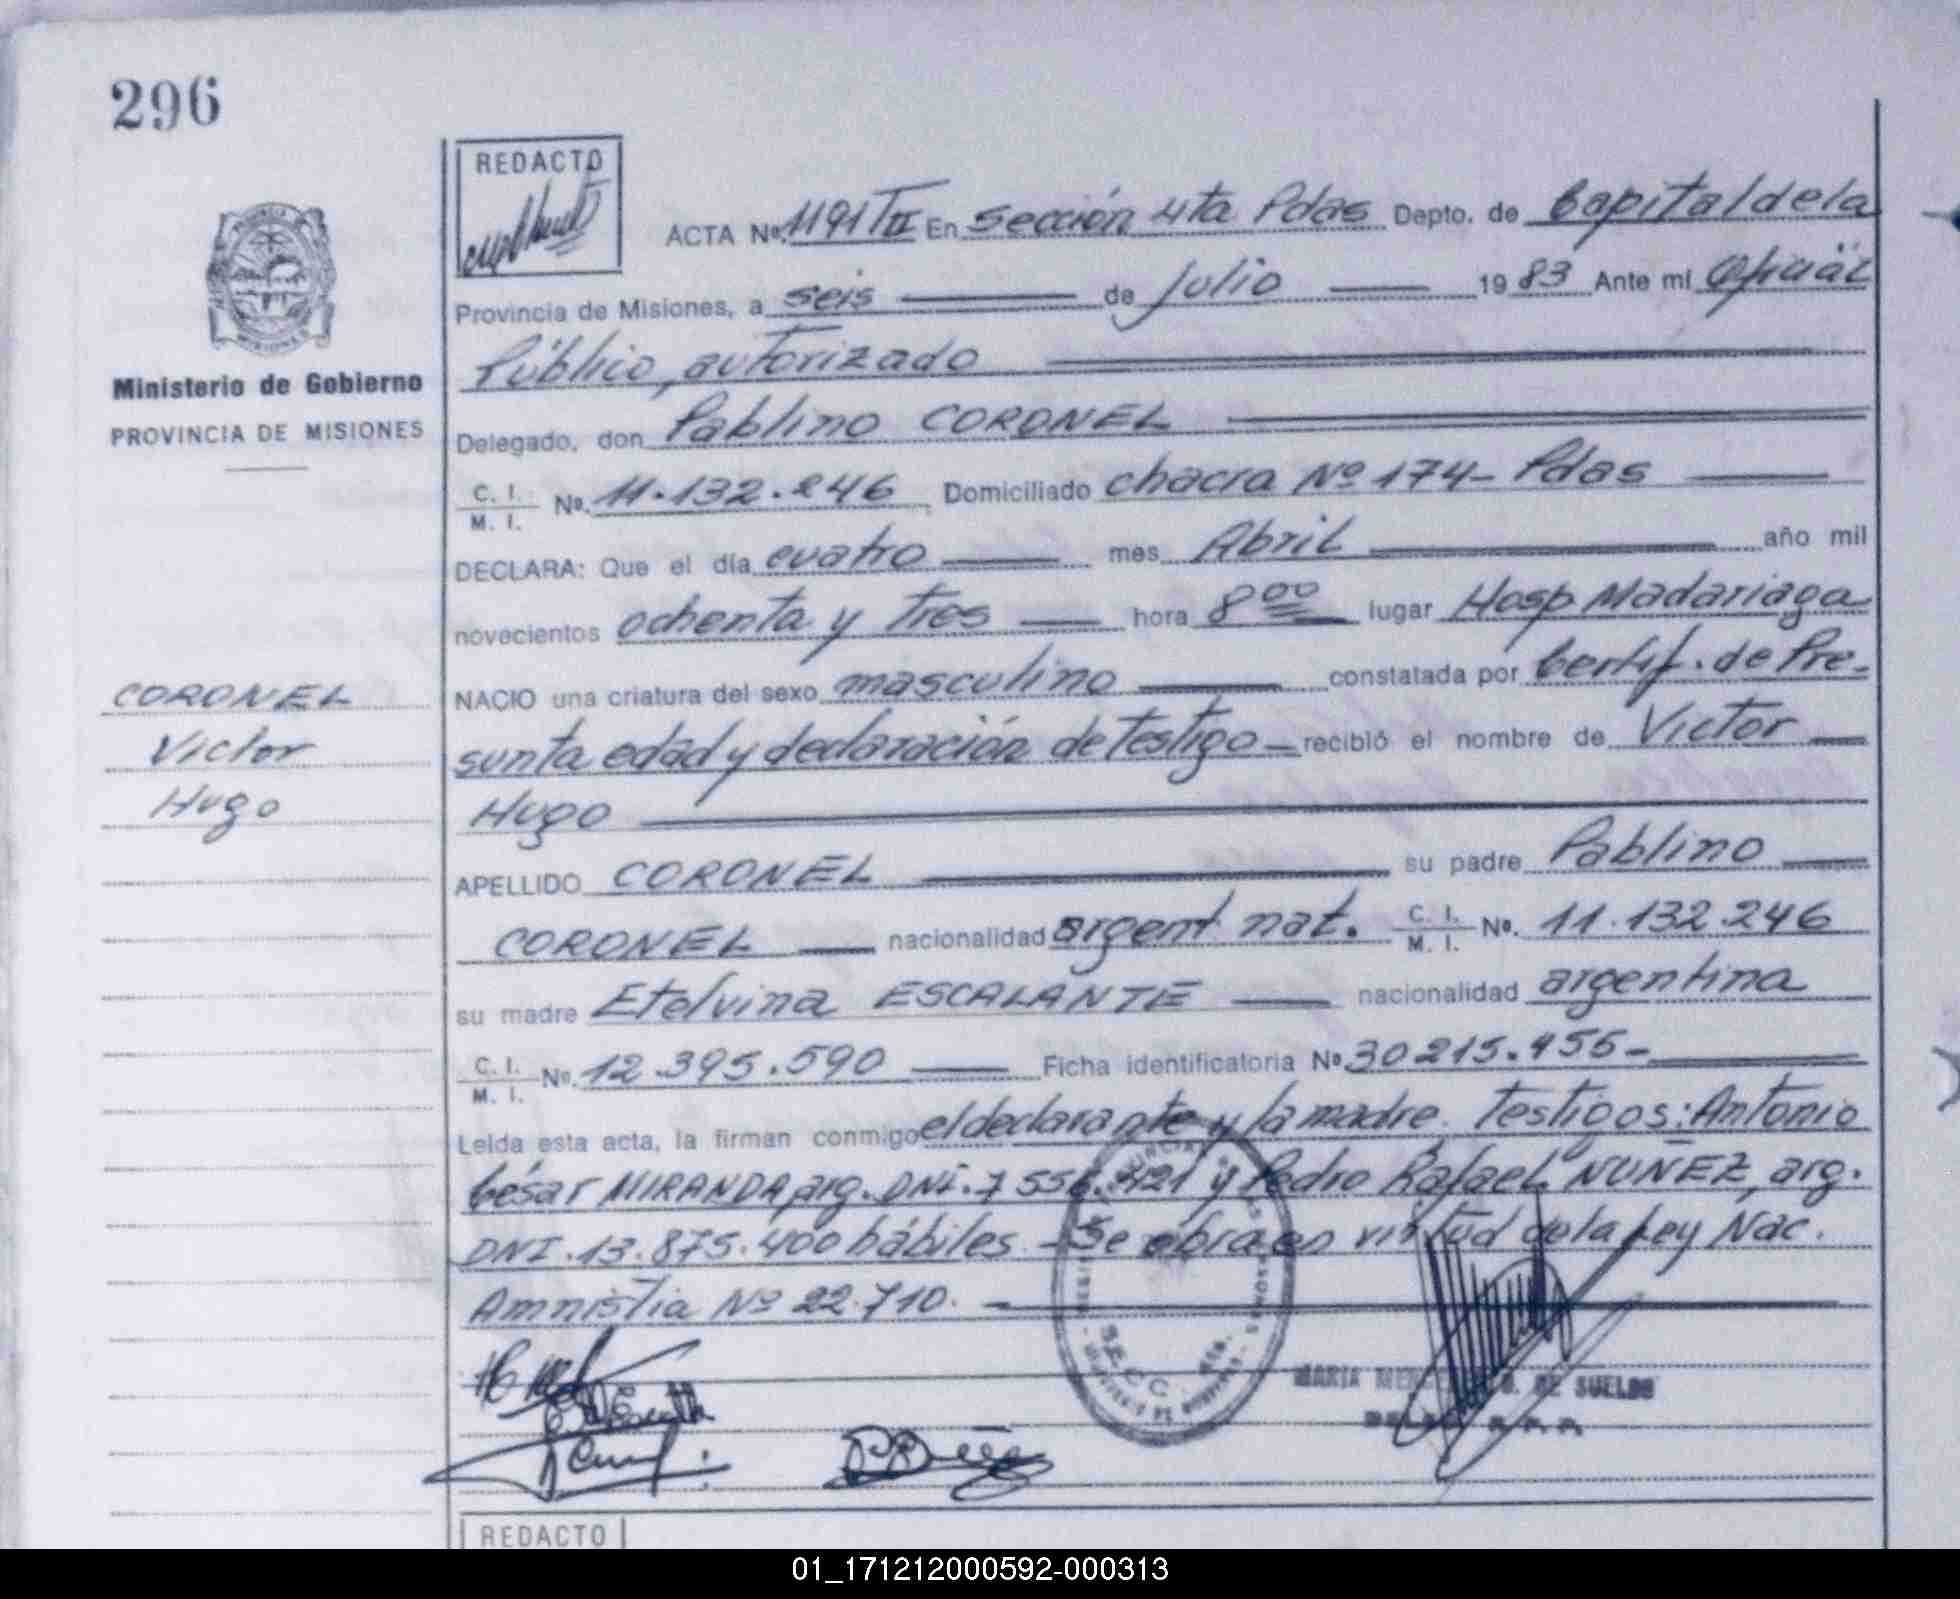 296
REDACTO
ACTA Nº. 1191 T II En Sección 4ta Pdas Depto. de Capital de la
Provincia de Misiones, a seis de Julio 19 83 Ante mi Oficial
Público, autorizado
Ministerio de Gobierno
PROVINCIA DE MISIONES
Delegado, don Pablino CORONEL
C. I. / M. I. Nº. 11.132.246 Domiciliado chacra Nº 174- Pdas
DECLARA: Que el día cuatro mes Abril año mil
novecientos ochenta y tres hora 8 00 lugar Hosp Madariaga
CORONEL
Victor
Hugo
NACIO una criatura del sexo masculino constatada por Certif. de Pre-
sunta edad y declaración de testigo - recibió el nombre de Victor
Hugo
APELLIDO CORONEL su padre Pablino
CORONEL nacionalidad argent nat. C. I. / M. I. Nº. 11.132.246
su madre Etelvina ESCALANTE nacionalidad argentina
C. I. / M. I. Nº. 12.395.590 Ficha identificatoria Nº 30215.455-
Leída esta acta, la firman conmigo el declarante y la madre. Testigos: Antonio
César MIRANDA, arg. DNI. 7 556.421 y Pedro Rafael NUÑEZ, arg.
DNI. 13.875.400 hábiles. - Se obra en virtud de la Ley Nac.
Amnistia Nº 22.710.
SECC.
MARIA DE SUELDO
REDACTO
01_171212000592-000313